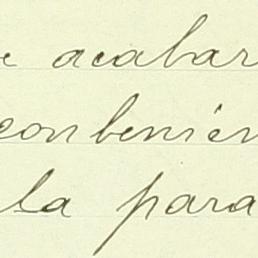 e acabar
conbenien
la para